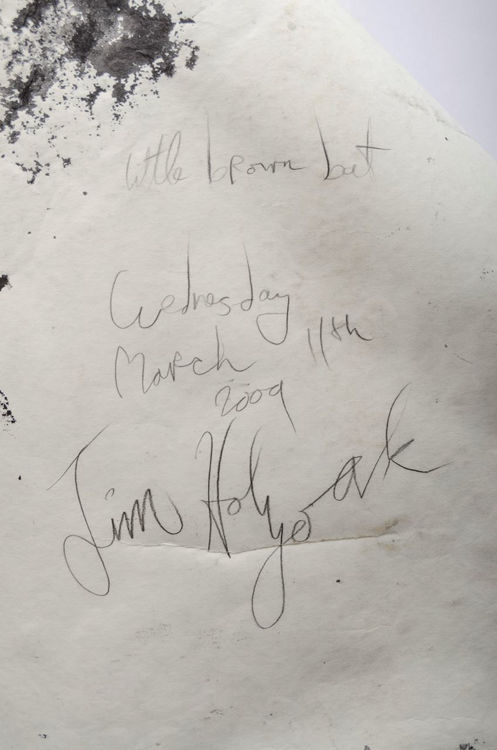 little brown bat
Wednesday
March 11th
2009
Jim Holyoak